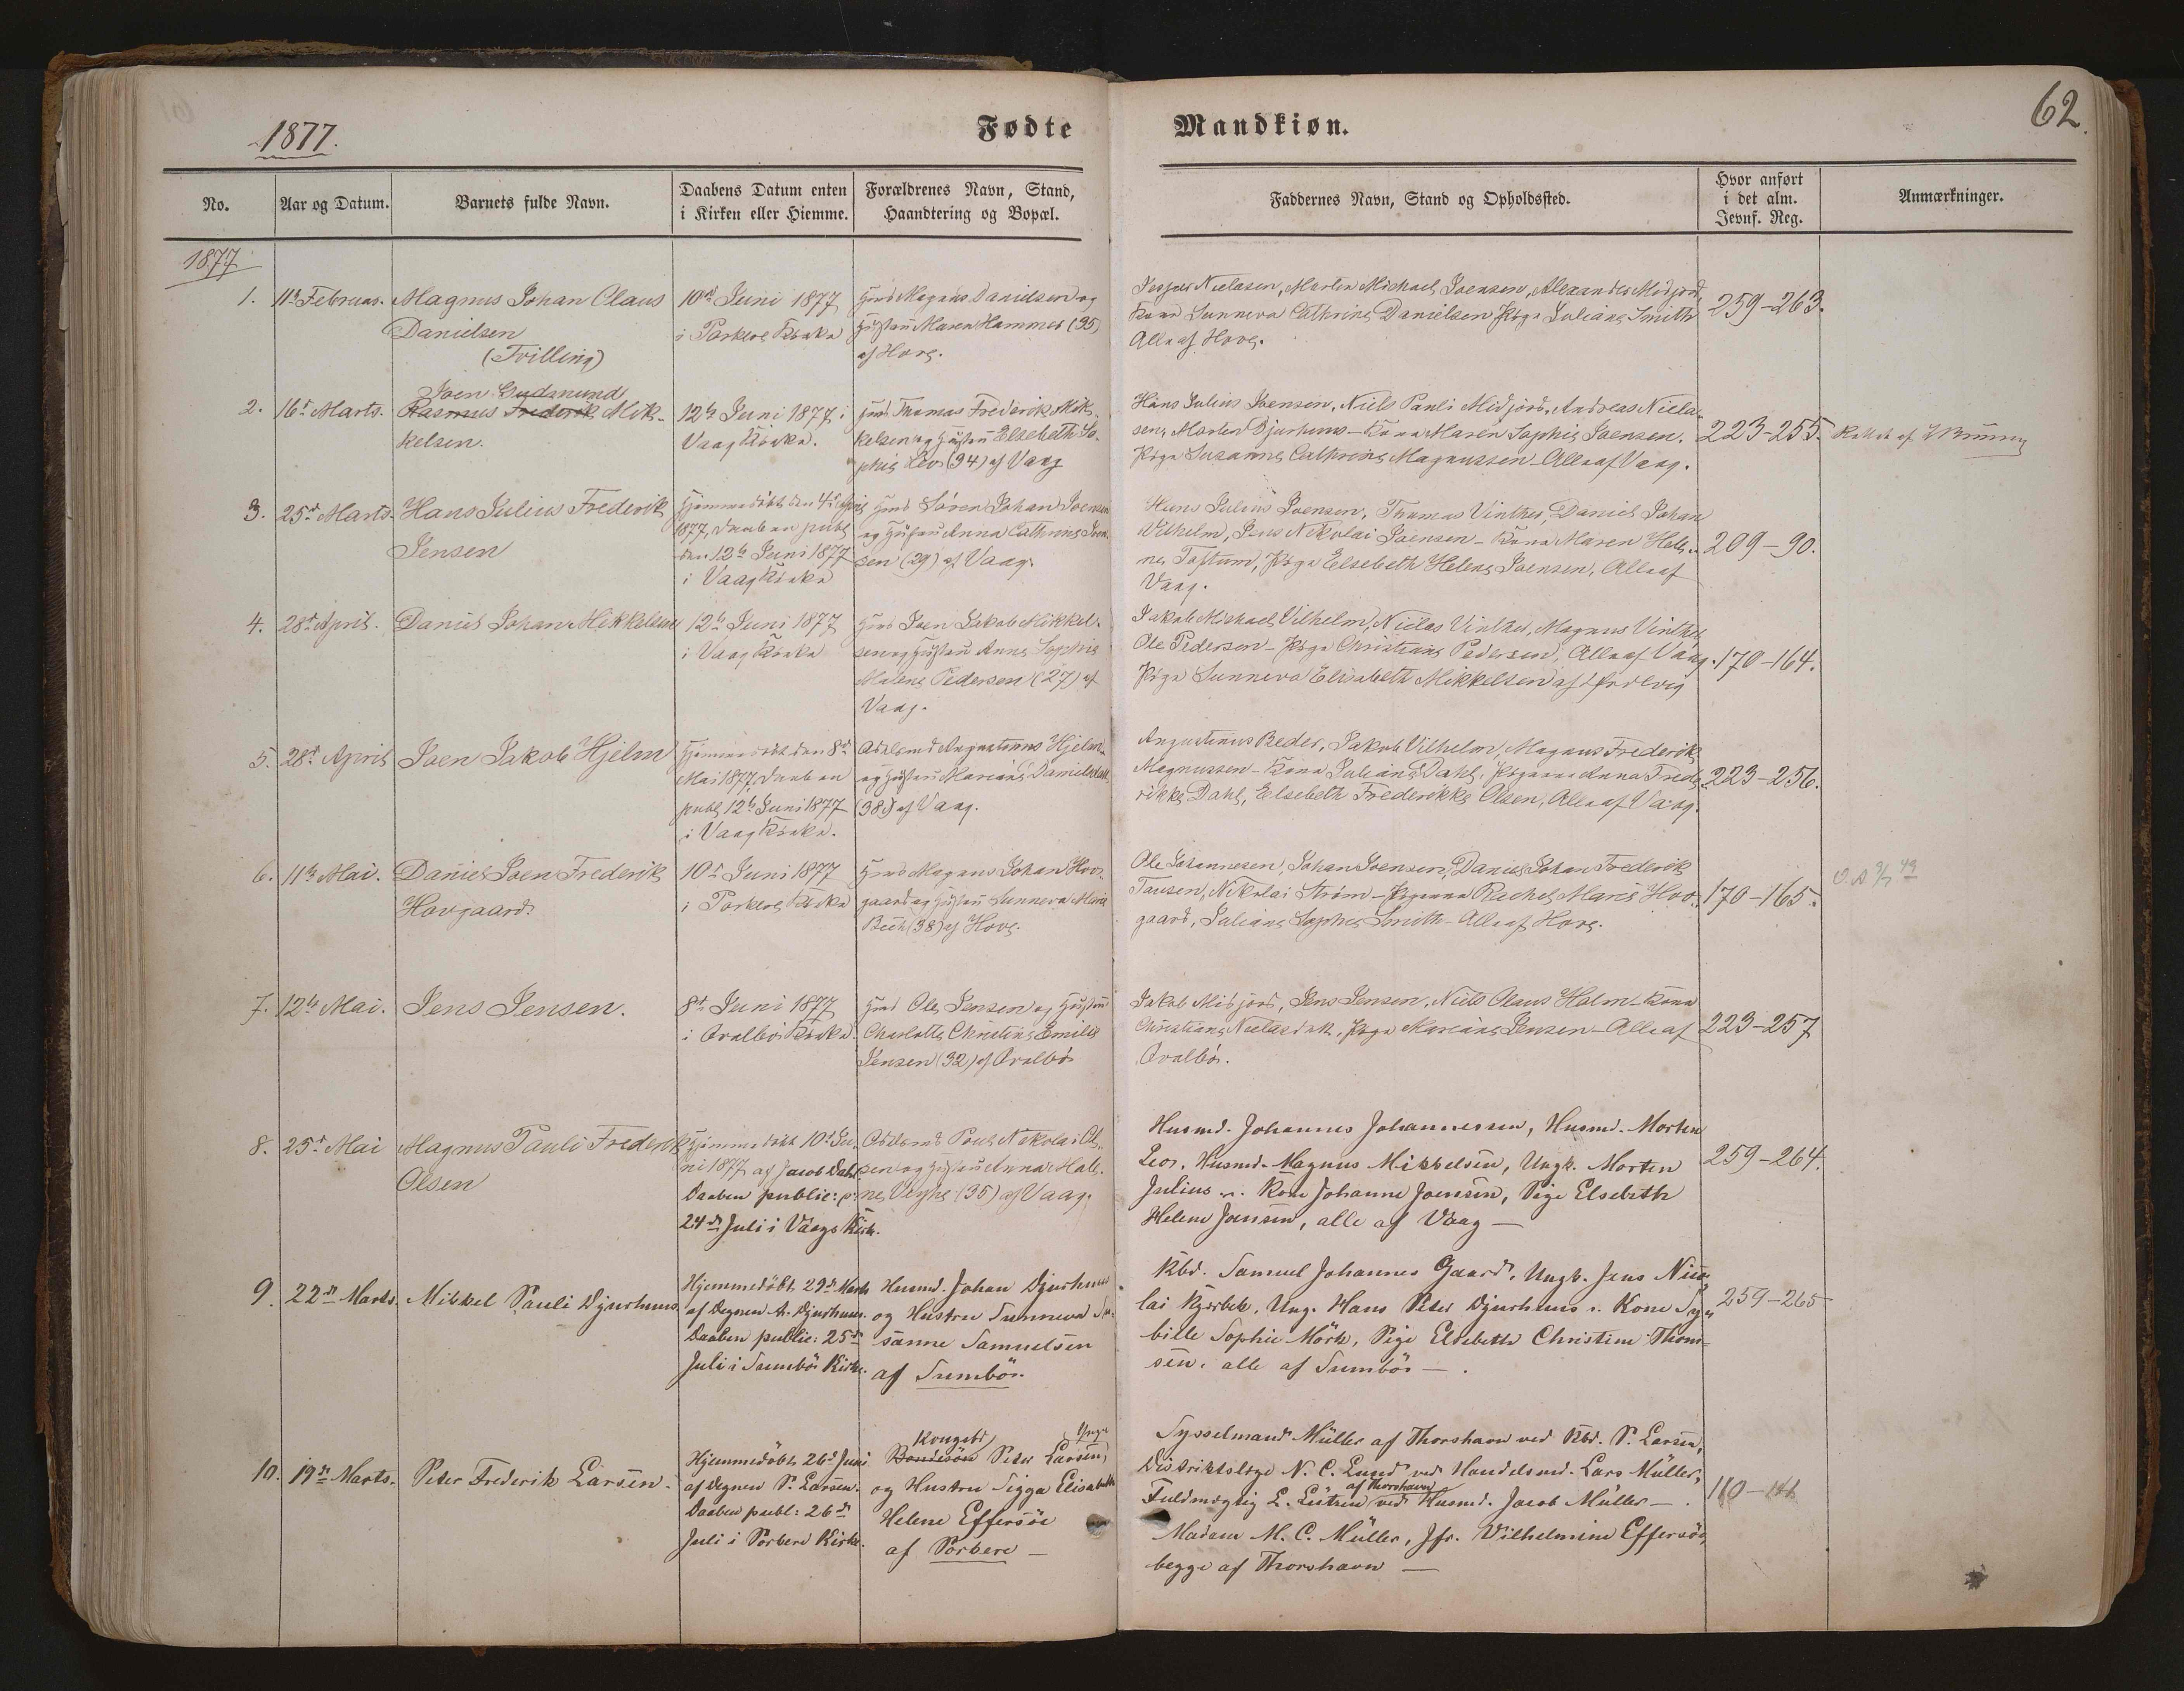 62.
1877.
Fødte
Mandkiøn.
No.
Aar og Datum.
Barnets fulde Navn.
Daabens Datum enten
i Kirken eller Hiemme.
Forældrenes Navn, Stand,
Haandtering og Bopæl.
Faddernes Navn, Stand og Opholdssted.
Hvor anført
i det alm.
Jevnf. Reg.
Anmærkninger.
1877
1.
11te Februar.
Magnus Johan Claus
Danielsen
(Tvilling)
10de Juni 1877
i Porkere Kirke
Husmd Magnus Danielsen og
Hustru Maren Hammer (35)
af Hove.
Jesper Nielasen, Morten Michael Joensen, Alexander Midjord,
Kone Sunneva Cathrine Danielsen Pige Juliane Smith
Alle af Hove.
259-263.
2.
16d Marts.
Joen Gudmund
Rasmus Frederik Mik-
kelsen.
12te Juni 1877 i
Vaag Kirke.
Husmd Thomas Frederik Mik-
kelsen og Hustru Elsebeth So-
phie Leo (34) af Vaag
Hans Julius Joensen, Niels Pauli Midjord, Andreas Niela-
sen, Morten Djurhuus - Kone Maren Sophie Joensen,
Pige Susanne Cathrine Magnussen - Alle af Vaag.
223-255.
Rettet af
3.
25de Marts.
Hans Julius Frederik
Jensen
Hjemmedøbt den 4de April
1877, Daaben publ
den 12te Juni 1877
i Vaag Kirke
Husmd Søren Johan Joensen
og Hustru Anna Cathrine Joen-
sen (29) af Vaag.
Hans Julius Joensen, Thomas Vinther, Daniel Johan
Vilhelm, Jens Nikolai Joensen - Kone Maren Hele-
ne Toftum, Pige Elsebeth Helene Joensen, Alle af
Vaag.
209-90.
4.
28de April.
Daniel Johan Mikkelsen
12te Juni 1877
i Vaag Kirke
Husmd Joen Jakob Mikkel-
sen og Hustru Anne Sophie
Malene Pedersen (27) af
Vaag.
Jakob Michael Vilhelm, Niclas Vinther, Magnus Vinther,
Ole Pedersen - Pige Christiane Pedersen, Alle af Vaag.
Pige Sunneva Elisabeth Mikkelsen af
170-164.
5.
28de April
Joen Jakob Hjelm
Hjemmedøbt den 8de
Mai 1877, Daaben
publ 12te Juni 1877
i Vaag Kirke.
Odelsmd Augustinus Hjelm
og Hustru Mariane
(38) af Vaag.
Augustinus Beder, Jakob Vilhelm, Magnus Frederik
Magnussen - Kone Juliane Dahl, Pigerne Anna Frede-
rikke Dahl, Elsebeth Frederikke Olsen, Alle af Vaag.
223-256.
6.
11te Mai.
Daniel Joen Frederik
Hovgaard
10de Juni 1877
i Porkere Kirke
Husmd Magnus Johan Hov-
gaard og Hustru Sunneva Maria
Bech (38) af Hove.
Ole Johannesen, Johan Joensen, Daniel Johan Frederik
Tausen, Nikolai Strøm - Pigerne Rachel Marie Hov-
gaard, Juliane Sophie Smith - Alle af Hove.
170-165.
7.
12te Mai.
Jens Jensen.
8de Juni 1877
i Qvalbø Kirke
Husmd Ole Jensen og Hustru
Charlotte Christine Emilie
Jensen (32) af Qvalbø
Jakob Midjord, Jens Jensen, Niels Claus Holm - Kone
Christiane Nielasdtr, Pige Mariane Jensen - Alle af
Qvalbø.
223-257
8.
25de Mai
Magnus Pauli Frederik
Olsen
Hjemmedøbt 10de Ju-
ni 1877 af Jacob Dahl
Daaben public: p:
24de Juli i Vaags Kirke.
Odelsmd Poul Nikolai Ol-
sen og Hustru Anna Male-
ne Veyhe (35) af Vaag.
Husmd. Johannes Johannessen, Husmd. Morten
Leos, Husmd. Magnus Mikkelsen, Ungk. Morten
Julius . Kone Johanne Joensen, Pige Elsebeth
Helene Jensen, alle af Vaag —
259-264.
9.
22de Marts.
Mikkel Pauli Djurhuus.
Hjemmedöbt 29de Marts
af Degnen A. Djurhuus.
Daaben public: 25de
Juli i Sumbö Kirke.
Husmd. Johan Djurhuus
og Hustru Sunneva Su-
sanne Samuelsen
af Sumbö.
Kbd. Samuel Johannes Gaard, Ungk. Jens Nico-
lai Kjærbek, Ung. Hans Peter Djurhuus . Kone Sy-
bille Sophie Mörk, Pige Elsebeth Christine Thom-
sen, alle af Sumbö —.
259-265
10.
19de Marts.
Peter Frederik Larsen
Hjemmedöbt 26d Juni
af Degnen P. Larsen.
Daaben publ: 26de
Juli i Porkere Kirke.
Kongsbd Yngre
Bondesön Peter Larsen,
og Hustru Sigga Elisabeth
Helene Effersöe
af Porkere —
Sysselmand Müller af Thorshavn ved Kbd. P. Larsen,
Distriktslæge N. C. Lund ved Handelsmd. Lars Müller,
af Thorshavn
Fuldmægtig L. Lützen ved Husmd. Jacob Müller —.
Madam M. C. Müller, Jfr. Vilhelmine Effersöe,
begge af Thorshavn —
110-